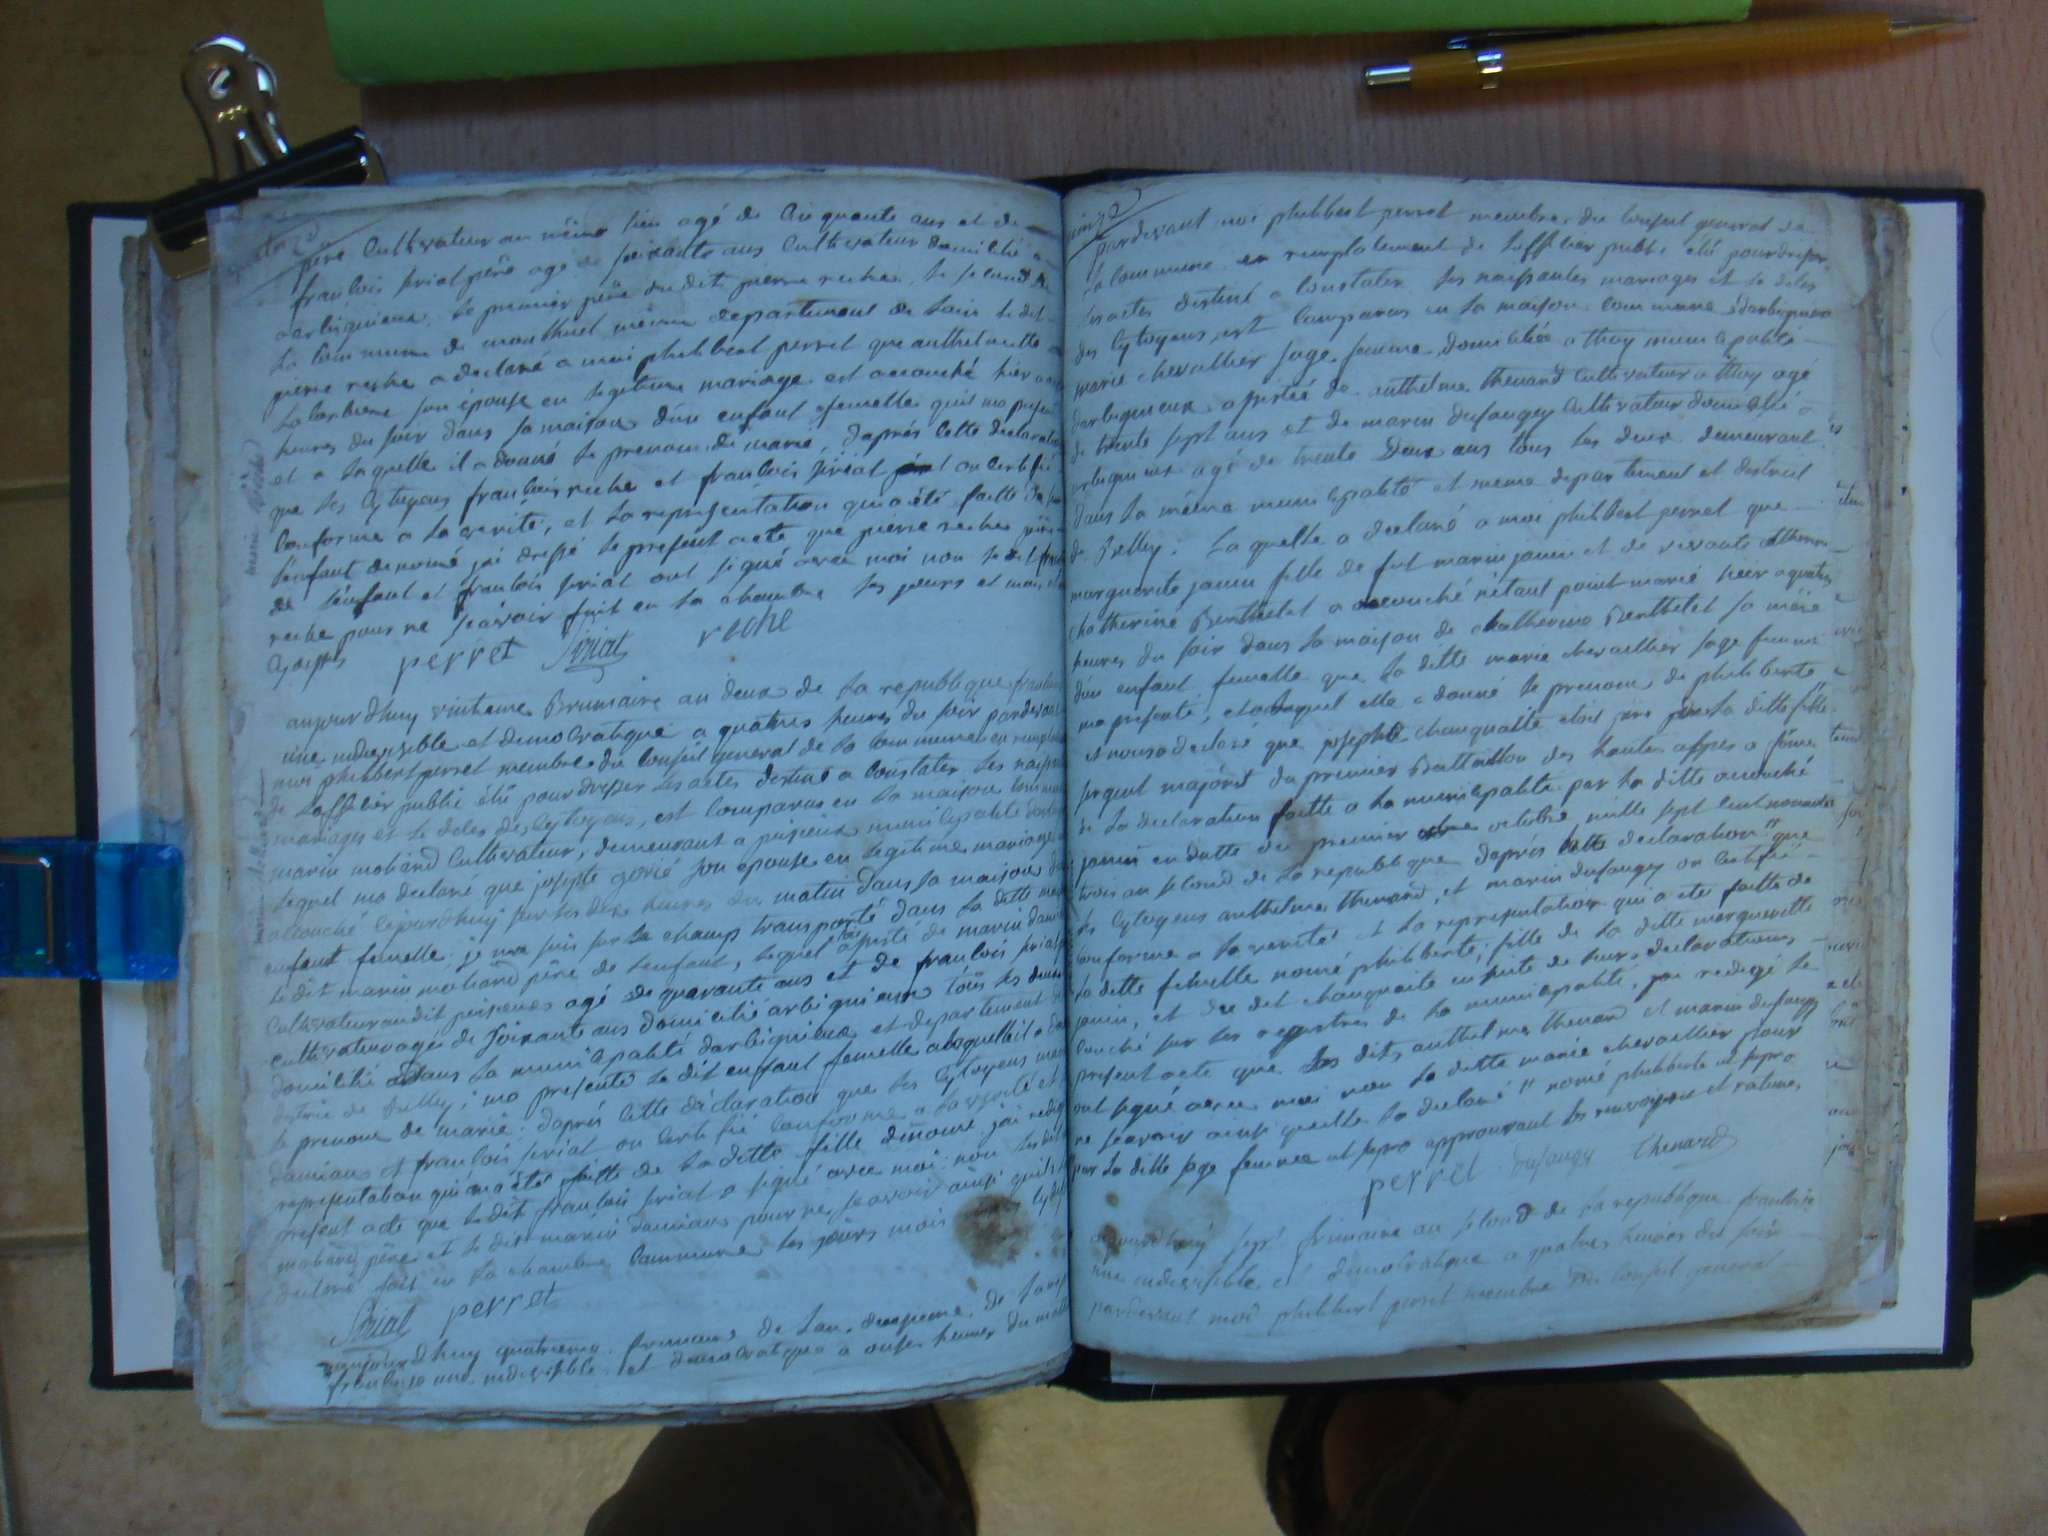 père Cultivateur au même lieu agé de Cinquante ans et de
françois sriat père agé de soixante ans Cultivateur domicilié a
arbiguieux, le premier père du dit pierre reche, le second de
la Commune de monthuel même departement de Lain le dit
pierre reche a declaré a moi philibert perret que anthelmette
son épouse en legitime mariage est acouché hier a
heures du soir dans sa maison d'un enfant femelle quil ma presenté
et a laquelle il a donné le prenom de marie, daprés Cette declaration
que les Cytoyens françois reche et françois sriat ont Certifié
Conforme a la verité, et la representation qui a été faitte de
l'enfant denomé jai dressé le present acte que pierre reche père
de l'enfant et françois sriat ont signé avec moi non le dit françois
reche pour ne sçavoir fait en la chambre les jours et mois et
Cy dessus perret Sriat reche
marie reche
aujourdhuy vintieme Brumaire an deux de la republique françoise
une indivisible et democratique a quatres heures du soir pardevant
moi philibert perret membre du Conseil general de la Commune en remplacement
de Lofficier public élû pour dresser les actes destiné a Constater les naissances
mariages et le deces des Cytoyens, est Comparus en la maison Commune
marin moliand Cultivateur, demeurant a pisieux municipalité
lequel ma declaré que josepte son épouse en legitime mariage a
acouché Cejourdhuy sur les dix heures du matin dans sa maison d'un
enfant femelle, je me suis sur le champ transporté dans la ditte maison
le dit marin moliand père de l'enfant, lequel assisté de marin damians
Cultivateur au dit pisieux agé de quarante ans et de françois sriat
cultivateur agé de soixante ans domicilié arbiguieux tous les deux
domicilié dans la municipalité darbiguieux et departement de
distric de Belley, ma presenté le dit enfant femelle a laquelle il a donné
le prenom de marie, daprés Cette declaration que les Cytoyens marin
damians et françois sriat on Certifié Conforme a la verité et la
representation qui ma été faitte de la ditte fille denomé jai redigé le
present acte que le dit françois sriat a signé avec moi non le dit
moliand père et le dit marin damians pour ne sçavoir ainsi quils l'ont
declaré fait en la chambre Commune les jours mois
Sriat perret
aujourdhuy quatrieme frimaire de Lan deuxieme de la republique
françoise une indivisible et democratique a onze heures du matin
pardevant moi philibert perret membre du Conseil general de
la Commune en remplacement de Lofficier public élû pour dresser
les actes destiné a Constater les naissances mariages et le deces
des Cytoyens, est Comparus en la maison Commune darbiguieux
marie chevallier sage femme domiciliée a thoy municipalité
darbiguieux assistée de anthelme thenard Cultivateur a thoy agé
de trente sept ans et de marin dufaugey Cultivateur domicilié a
arbiguieux agé de trente deux ans tous les deux demeurant
dans la même municipalité et meme departement et district
de Belley. Laquelle a declaré a moi philibert perret que
marguerite janin fille de fut marin janin et de vivante
chatherine Berthelet a acouché n'etant point marié hier a quatres
heures du soir dans la maison de chatherine Berthelet sa mère
d'un enfant femelle que la ditte marie chevallier sage femme
ma presenté, et auquel elle a donné le prenom de philiberte
et nous a declaré que joseph changuaite etoit père de la ditte fille
sergent majord du premier Battaillon des hautes alpes a
de la declaration faitte a la municipalité par la ditte acouché
janin en datte du premier octobre mille sept cent nonante
trois an second de la republique daprés cette declaration que
les Cytoyens anthelme thenard, et marin dufaugey on Certifié
Conforme a la verité et la representation qui a été faitte de
la ditte femelle nomé philiberte, fille de la ditte marguerite
janin, et du dit changuaite en suite de leurs declarations
Couché sur les registres de la municipalité, jai redigé le
present acte que les dits anthelme thenard et marin dufaugey
ont signé avec moi non la ditte marie chevallier pour
ne sçavoir ainsi quelle la declaré nomé philiberte
par la ditte sage femme approuvant les renvoyes et ratures
perret dufaugey thenard
aujourdhuy sept frimaire an second de la republique françoise
une indivisible et democratique a quatres heures du soir
pardevant moi philibert perret membre du Conseil general